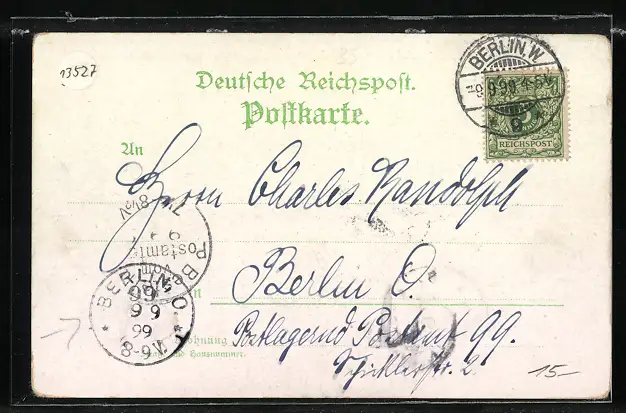 13527
Deutsche Reichspost.
Postkarte.
BERLIN. W.
9 9 99 4-5 N
* 8 *
REICHSPOST
An
Herrn Charles Randolph
Postamt
Berlin O.
in
BERLIN O
9 9
99
8-9 V.
Wohnung
und Hausnummer.
Postlagernd Postamt 99.
Schicklerstr. 2
15-